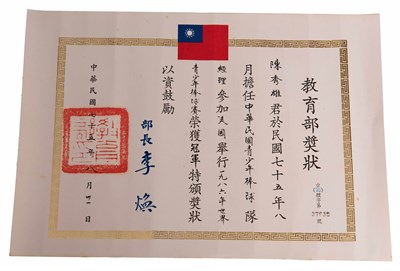 教育部獎狀
陳秀雄君於民國七十五年八
月擔任中華民國青少年棒球隊
經理參加美國舉行一九八六年世界
青少年棒球賽榮獲冠軍特頒獎狀
以資鼓勵
部長 李煥
中華民國七十五年八月廿一日